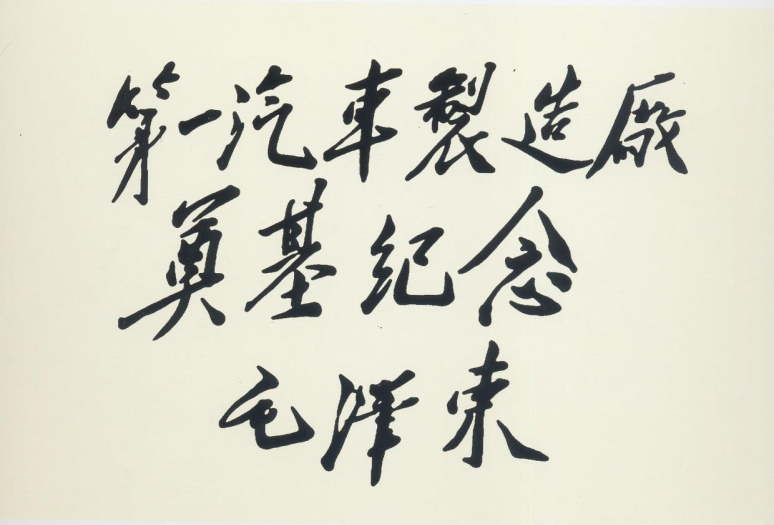 第一汽車製造廠
奠基纪念
毛澤東